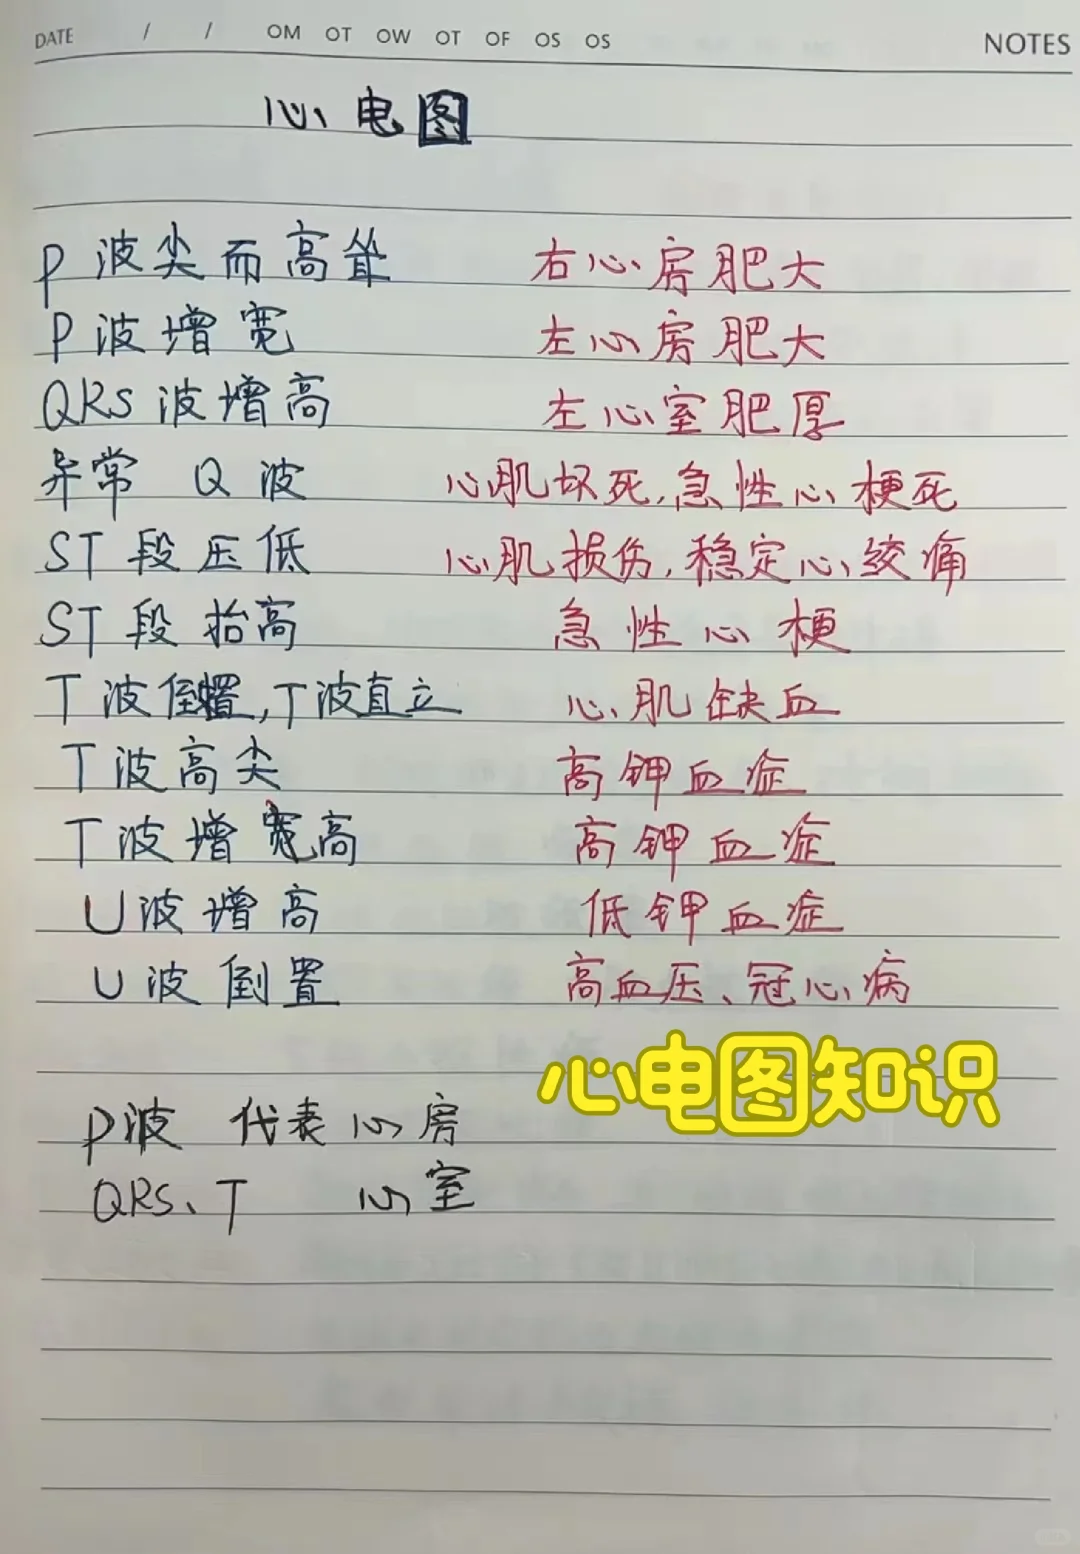 DATE / / OM OT OW OT OF OS OS NOTES
心电图
P波尖而高耸 右心房肥大
P波增宽 左心房肥大
QRS波增高 左心室肥厚
异常 Q波 心肌坏死,急性心梗死
ST段压低 心肌损伤,稳定心绞痛
ST段抬高 急性心梗
T波倒置,T波直立 心肌缺血
T波高尖 高钾血症
T波增宽高 高钾血症
U波增高 低钾血症
U波倒置 高血压、冠心病
心电图知识
P波 代表心房
QRS、T 心室